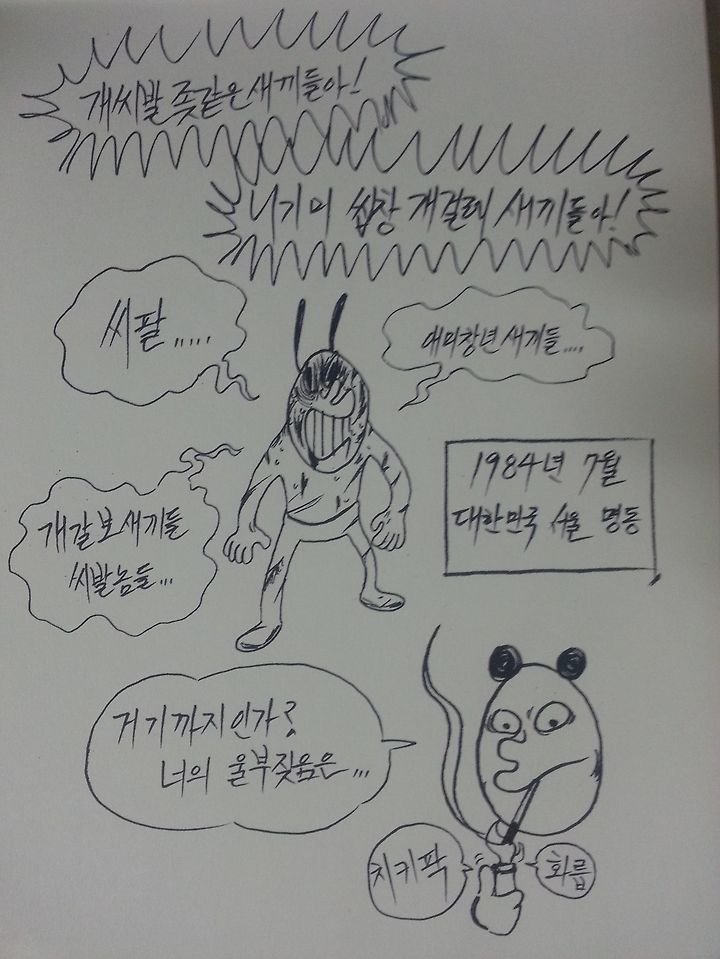 개씨발 좆같은새끼들아!
니기미 씹창 개걸레 새끼들아!
씨팔.....
애미창년새기들....
1984년 7월
대한민국 서울 명동
개갈보새끼들
씨발놈들...
거기까지인가?
너의 울부짖음은...
치키팍
화릅